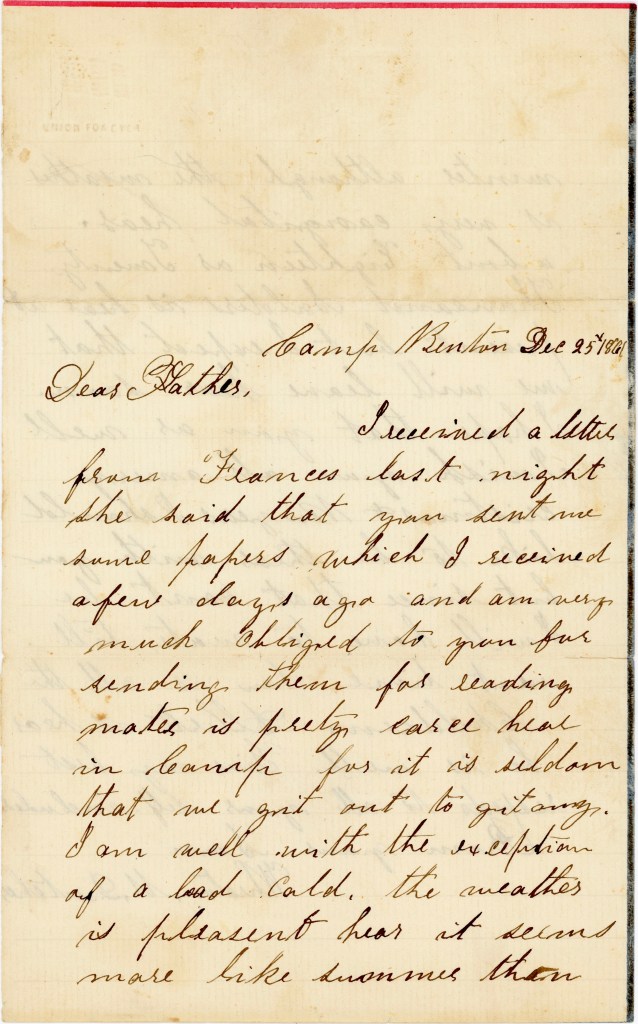 Camp Benton Dec 25th 1861
Dear Father,
I received a letter
from Frances last night
she said that you sent me
some papers which I received
a few days ago and am very
much obliged to you for
sending them for reading
mater is prety carce hear
in Camp for it is seldom
that we git out to git any.
I am well with the exception
of a bad Cold. the weather
is pleasent hear it seems
more like summer than